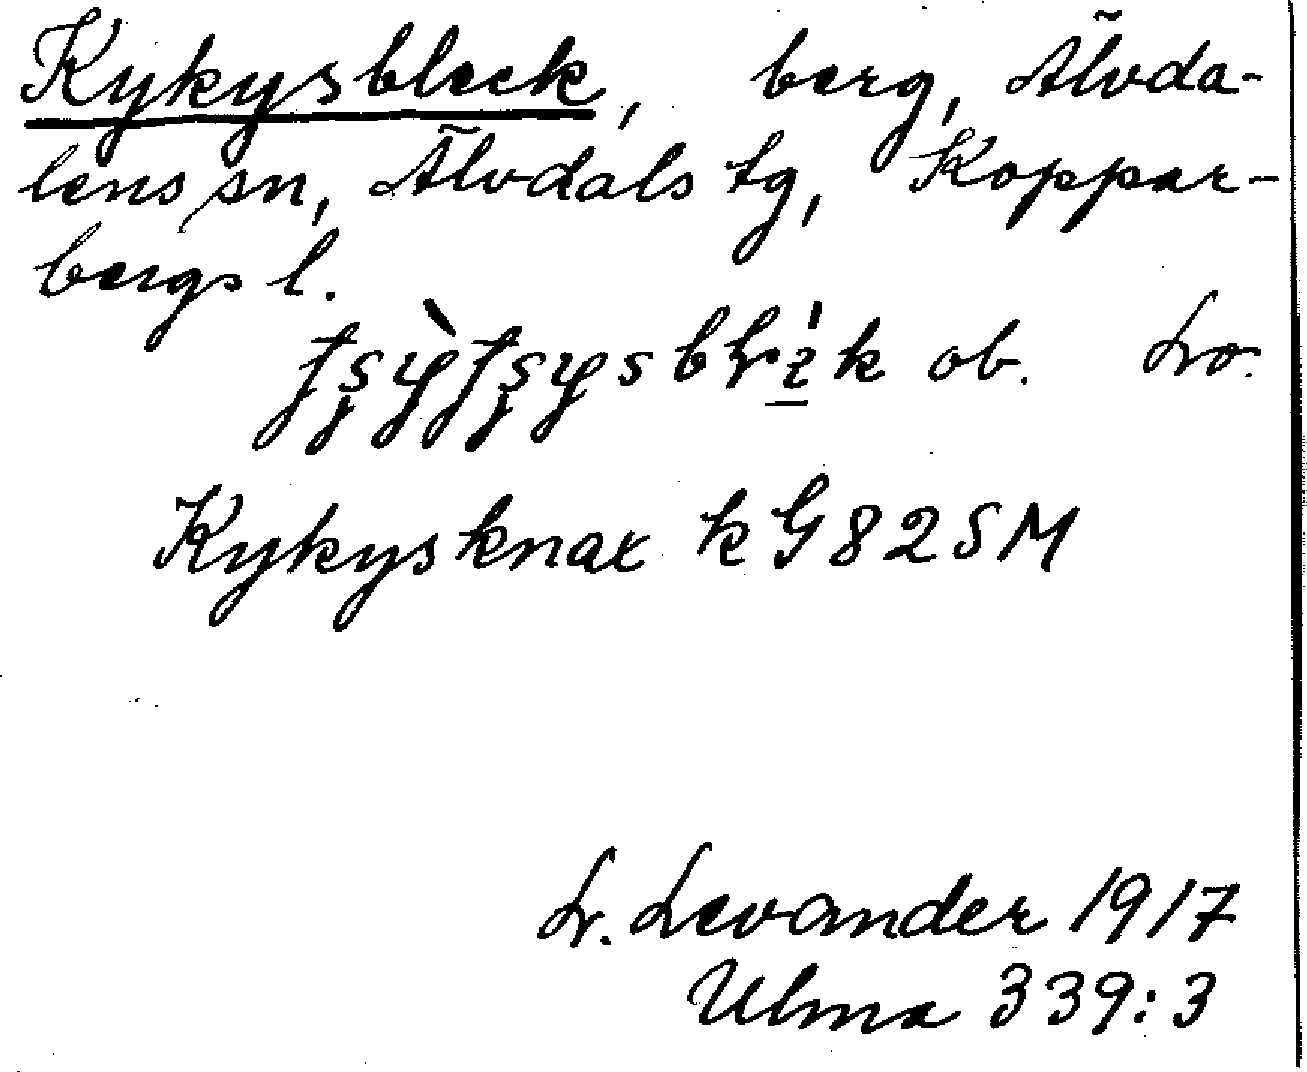 Kykysbleck, berg, Älvda-
lens sn, Älvdals tg, Koppar-
bergs l.
ob. Lvo.
Kykysknax k G 82 SM
L. Levander 1917
Ulma 339:3